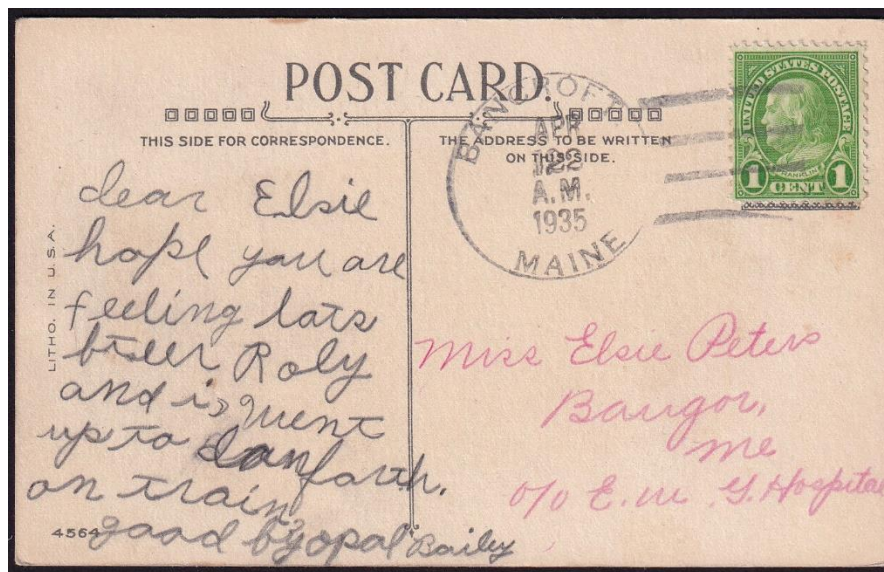 POST CARD.
THIS SIDE FOR CORRESPONDENCE.
THE ADDRESS TO BE WRITTEN
ON THIS SIDE.
BANCROFT
APR
A.M.
1935
MAINE
UNITED STATES POSTAGE
FRANKLIN
1 CENT 1
dear Elsie
hope you are
feeling lots
Roly
and i, went
up to danforth.
on train
good by opal Baily
LITHO. IN U.S.A.
4564
Miss Elsie Peters
Bangor,
Me
c/o E. M. G. Hospital